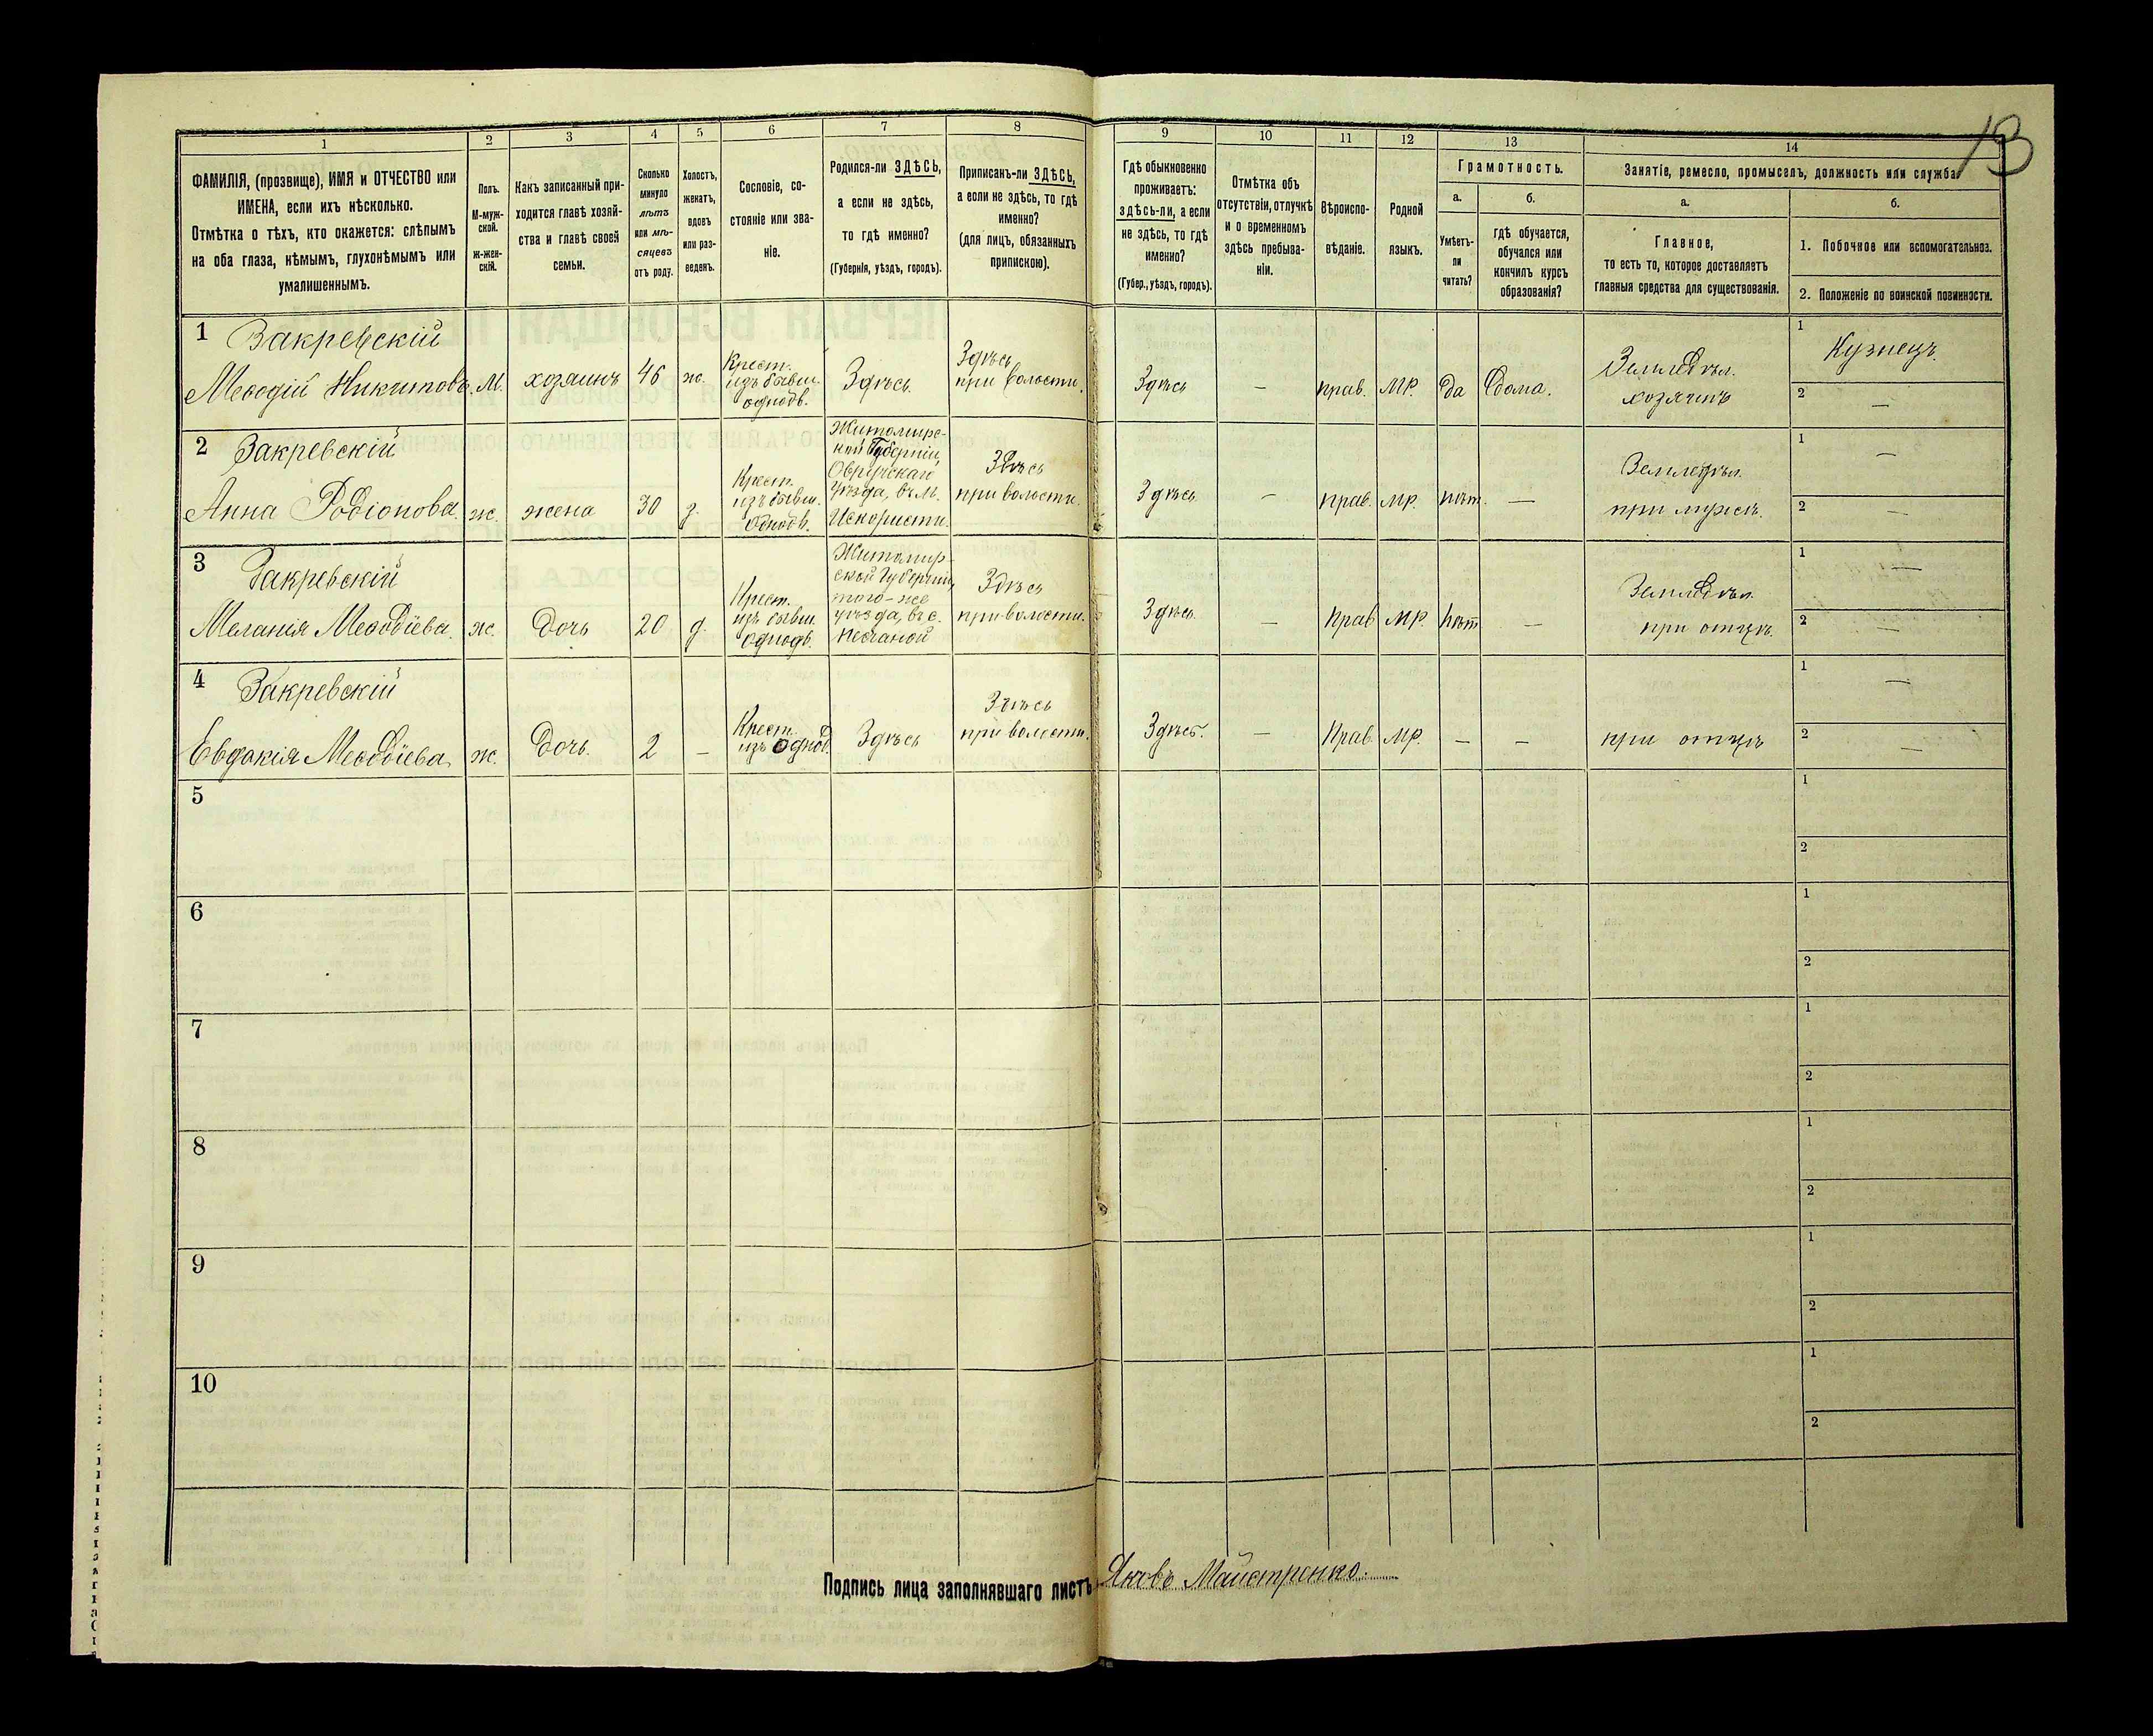 13
1
ФАМИЛІЯ, (прозвище), ИМЯ и ОТЧЕСТВО или
ИМЕНА, если ихъ нѣсколько.
Отмѣтка о тѣхъ, кто окажется: слѣпымъ
на оба глаза, нѣмымъ, глухонѣмымъ или
умалишеннымъ.
2
Полъ.
М-муж-
ской.
Ж-жен-
скій.
3
Какъ записанный при-
ходится главѣ хозяй-
ства и главѣ своей
семьи.
4
Сколько
минуло
лѣтъ
или мѣ-
сяцевъ
отъ роду.
5
Холостъ,
женатъ,
вдовъ
или раз-
веденъ.
6
Сословіе, со-
стояніе или зва-
ніе.
7
Родился-ли ЗДѢСЬ,
а если не здѣсь,
то гдѣ именно?
(Губернія, уѣздъ, городъ).
8
Приписанъ-ли ЗДѢСЬ,
а если не здѣсь, то гдѣ
именно?
(для лицъ, обязанныхъ
припискою).
9
Гдѣ обыкновенно
проживаетъ:
здѣсь-ли, а если
не здѣсь, то гдѣ
именно?
(Губер., уѣздъ, городъ).
10
Отмѣтка объ
отсутствіи, отлучкѣ
и о временномъ
здѣсь пребыва-
ніи.
11
Вѣроиспо-
вѣданіе.
12
Родной
языкъ.
13
Грамотность.
а.
Умѣетъ-
ли
читать?
б.
гдѣ обучается,
обучался или
кончилъ курсъ
образованія?
14
Занятіе, ремесло, промыселъ, должность или служба.
а.
Главное,
то есть то, которое доставляетъ
главныя средства для существованія.
б.
1. Побочное или вспомогательное.
2. Положеніе по воинской повинности.
1 Закревскій
Меѳодій Никитовъ. М. хозяинъ 46 ж.
Крест.
изъ бывш.
однодв.
Здѣсь
Здѣсь
при волости.
Здѣсь — прав. МР. да Дома.
Земледѣл.
хозяинъ
1 Кузнецъ.
2 —
2 Закревскій
Анна Родіонова. ж. жена 30 з.
Крест.
изъ бывш.
однодв.
Житомирс-
кой Губерніи,
Овручскаго
уѣзда, въ м.
Искорости.
Здѣсь
при волости.
Здѣсь — прав. мр. нѣт. —
Земледѣл.
при мужѣ.
1 —
2 —
3 Закревскій
Меланія Меѳодіева. ж. Дочь 20 д.
Крест.
изъ бывш.
однодв.
Житомир-
ской Губерніи,
того-же
уѣзда, въ с.
Песчаной
Здѣсь
при волости.
Здѣсь — прав мр. нѣт —
Земледѣл.
при отцѣ.
1 —
2 —
4 Закревскій
Евдокія Меѳодіева. ж. Дочь. 2 —
Крест.
изъ однод.
Здѣсь
Здѣсь
при волости.
Здѣсь. — Прав. мр. — —
при отцѣ
1 —
2 —
5
1
2
6
1
2
7
1
2
8
1
2
9
1
2
10
1
2
Подпись лица заполнявшаго листъ Яковъ Майстренко.